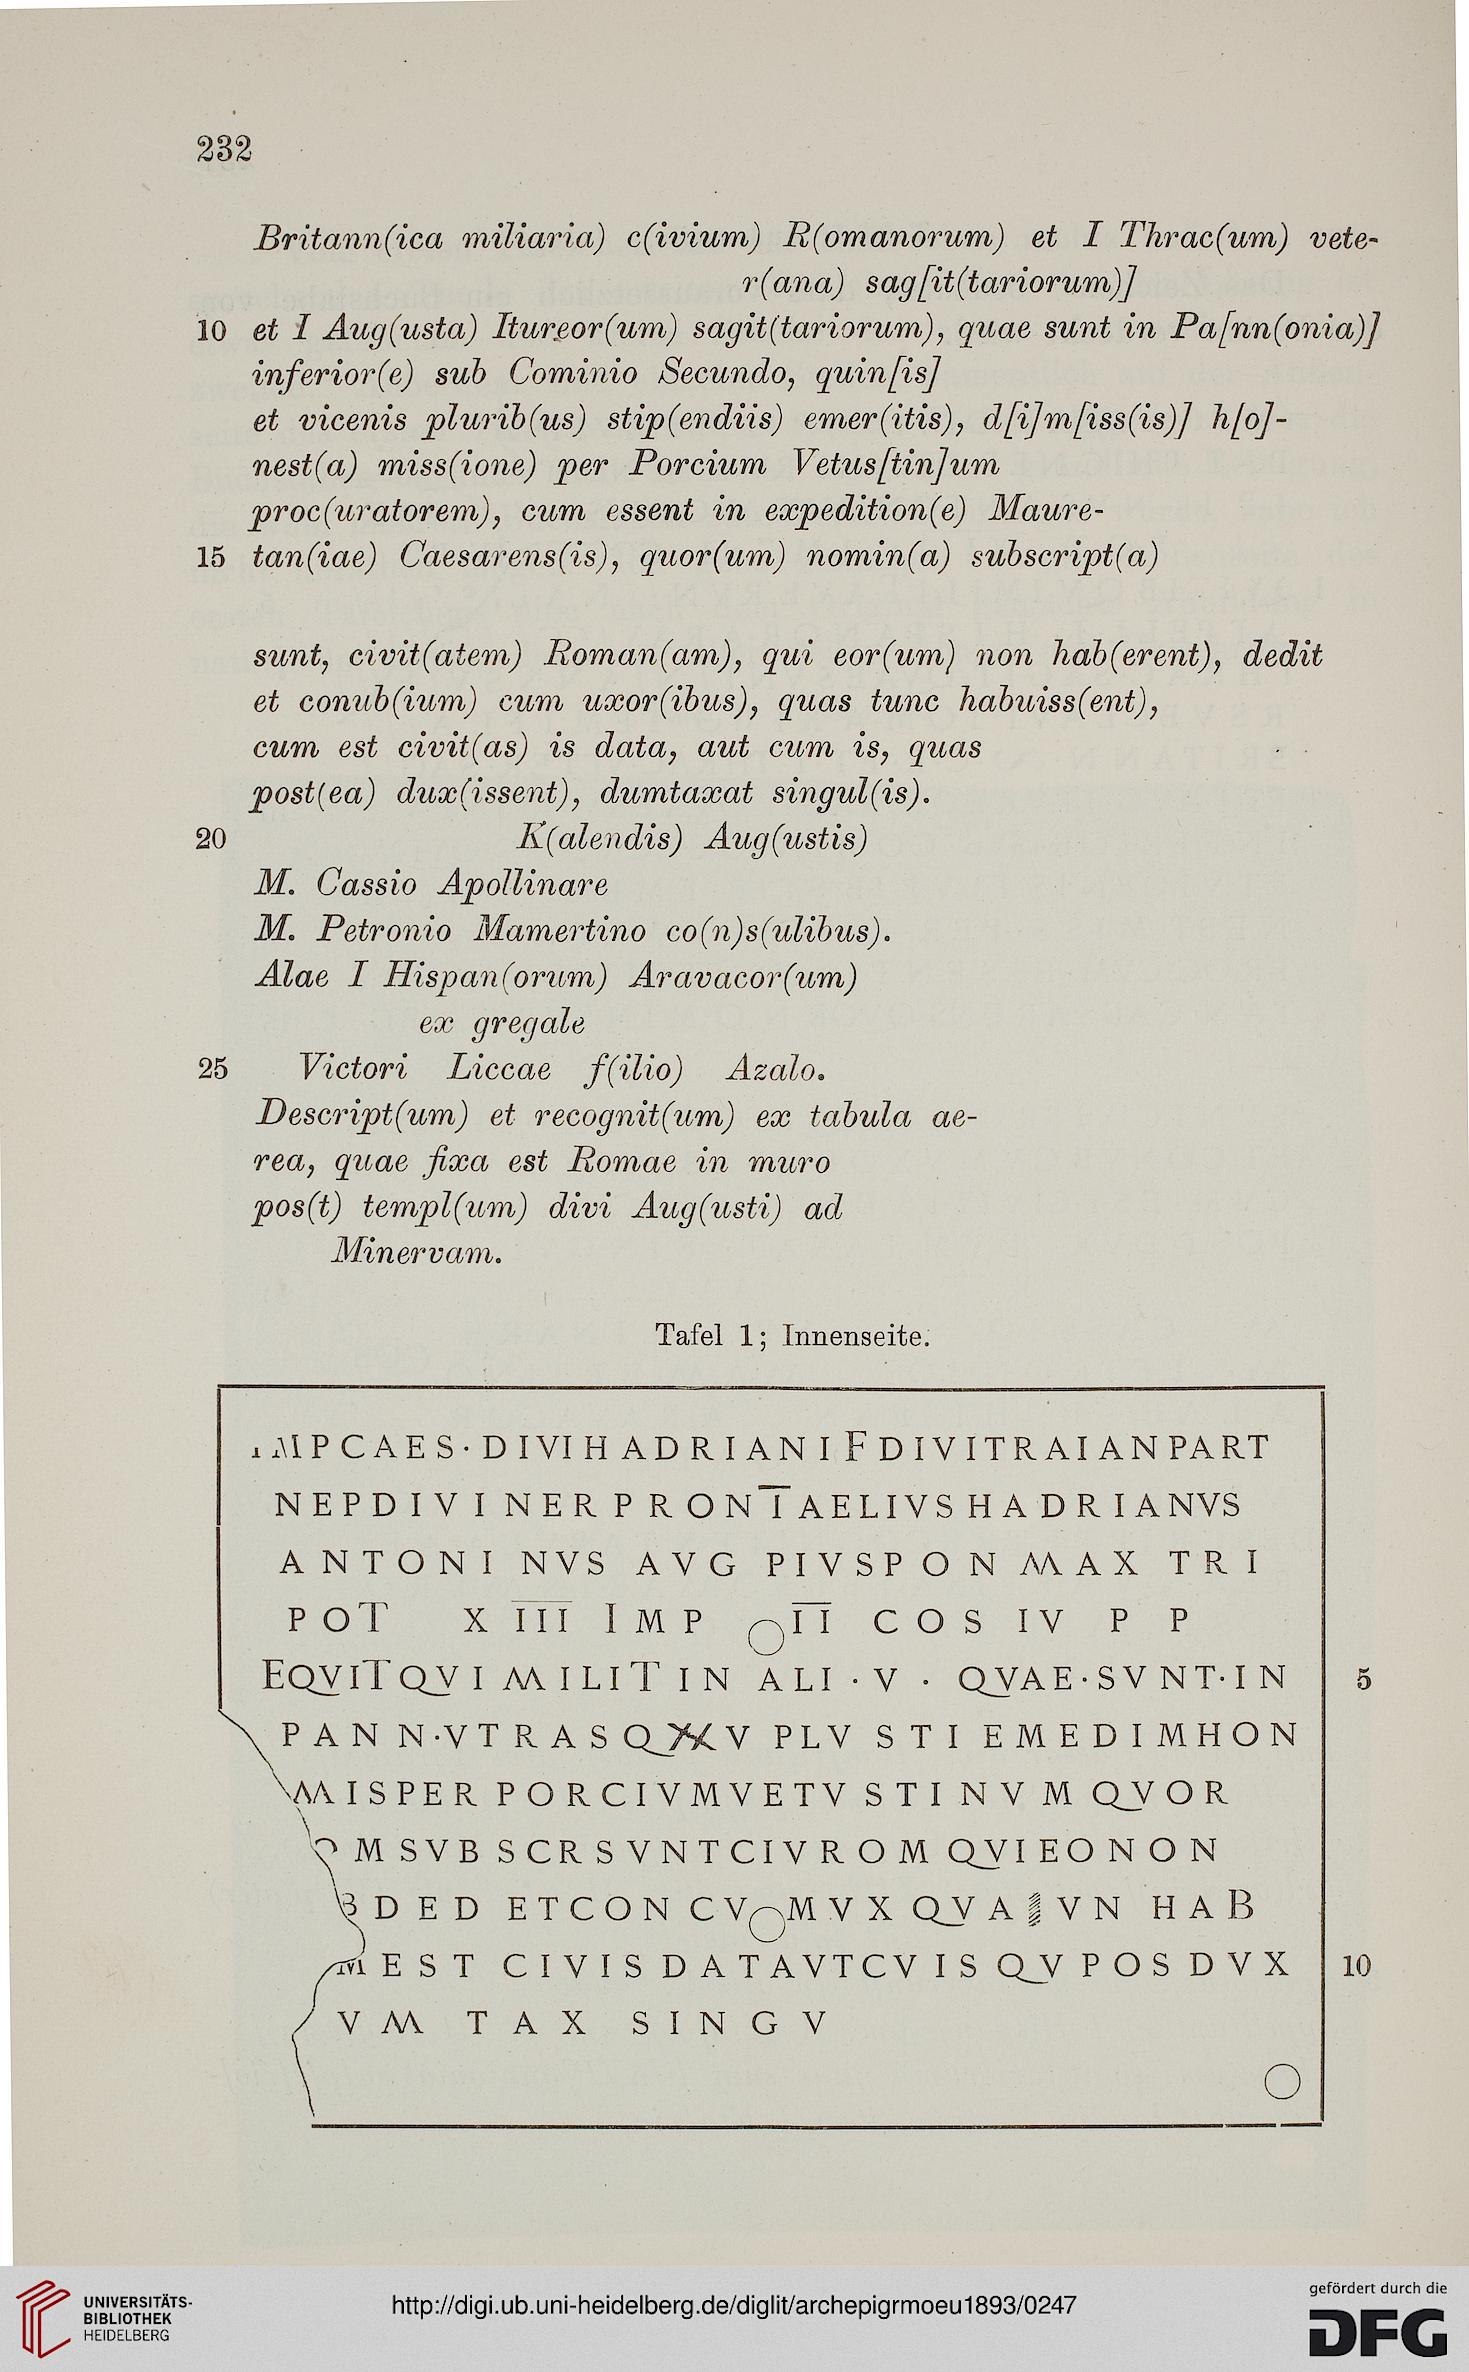 232
Britann(ica miliaria) c(ivium) R(omanorum) et I Thrac(um) vete-
r(ana) sag[it(tariorum)]
10 et I Aug(usta) Itureor(um) sagit(tariorum), quae sunt in Pa[nn(onia)]
inferior(e) sub Cominio Secundo, quin[is]
et vicenis plurib(us) stip(endiis) emer(itis), d[i]m[iss(is)] h[o]-
nest(a) miss(ione) per Porcium Vetus[tin]um
proc(uratorem), cum essent in expedition(e) Maure-
15 tan(iae) Caesarens(is), quor(um) nomin(a) subscript(a)
sunt, civit(atem) Roman(am), qui eor(um) non hab(erent), dedit
et conub(ium) cum uxor(ibus), quas tunc habuiss(ent),
cum est civit(as) is data, aut cum is, quas
post(ea) dux(issent), dumtaxat singul(is).
20 K(alendis) Aug(ustis)
M. Cassio Apollinare
M. Petronio Mamertino co(n)s(ulibus).
Alae I Hispan(orum) Aravacor(um)
ex gregale
25 Victori Liccae f(ilio) Azalo.
Descript(um) et recognit(um) ex tabula ae-
rea, quae fixa est Romae in muro
pos(t) templ(um) divi Aug(usti) ad
Minervam.
Tafel 1; Innenseite.
IMPCAES·DIVIHADRIANIFDIVITRAIANPART
NEPDIVINERPRONTAELIVSHADRIANVS
ANTONINVS AVG PIVSPON MAX TRI
POT XIII IMP II COS IV P P
EQVITQVI MILITIN ALI·V· QVAE·SVNT·IN 5
PANN·VTRASQXXV PLV STI EMEDIMHON
MISPER PORCIVMVETVSTINVM QVOR
OMSVBSCRSVNTCIVROMQVIEONON
BDED ETCONCVMVXQVA VN HAB
MEST CIVISDATAVTCVISQVPOSDVX 10
VM TAX SINGV
UNIVERSITÄTS-
BIBLIOTHEK
HEIDELBERG
http://digi.ub.uni-heidelberg.de/diglit/archepigrmoeu1893/0247
gefördert durch die
DFG